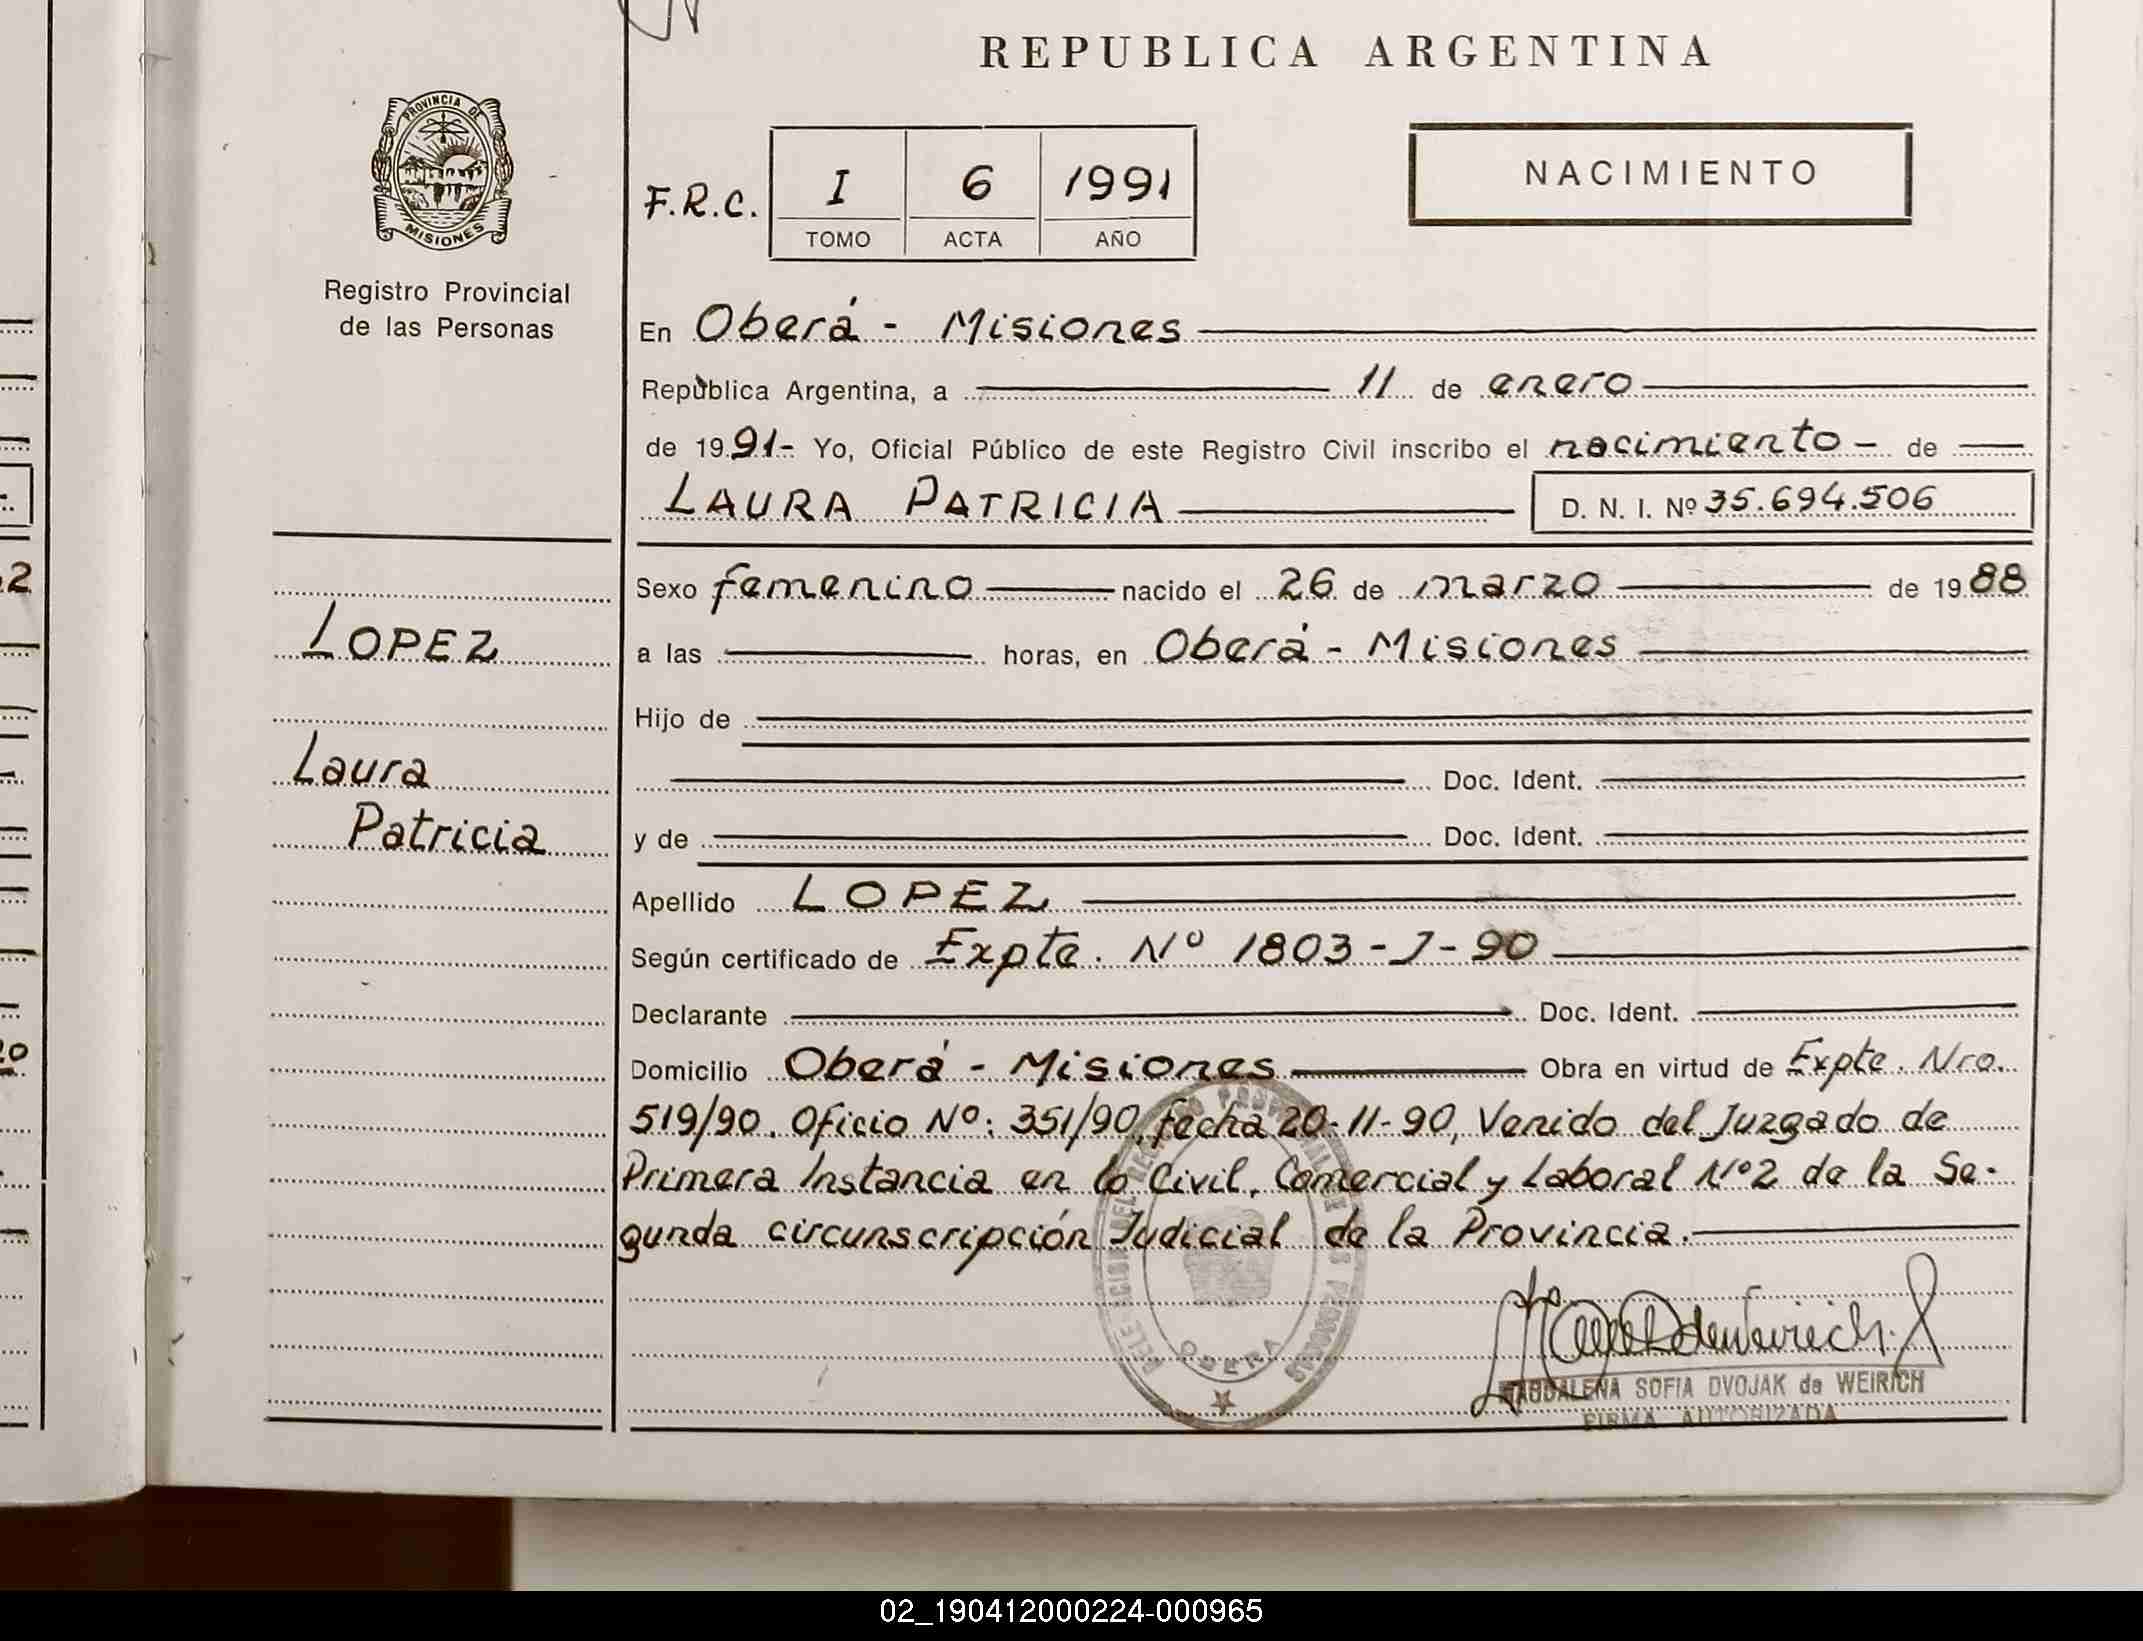 REPUBLICA ARGENTINA
PROVINCIA DE
MISIONES
Registro Provincial
de las Personas
NACIMIENTO
F.R.C. I 6 1991
TOMO ACTA AÑO
En Oberá - Misiones
República Argentina, a 11 de enero
de 1991- Yo, Oficial Público de este Registro Civil inscribo el nacimiento - de
LAURA PATRICIA D. N. I. Nº 35.694.506
Sexo femenino nacido el 26 de marzo de 1988
LOPEZ
a las horas, en Oberá - Misiones
Hijo de
Laura
Doc. Ident.
Patricia
y de Doc. Ident.
Apellido LOPEZ
Según certificado de Expte. Nº 1803-J-90
Declarante Doc. Ident.
Domicilio Oberá - Misiones Obra en virtud de Expte. Nro.
519/90. Oficio Nº: 351/90, fecha 20-11-90, Venido del Juzgado de
Primera Instancia en lo Civil, Comercial y Laboral Nº2 de la Se-
gunda circunscripción Judicial de la Provincia.-
OBERA
MAGDALENA SOFIA DVOJAK de WEIRICH
FIRMA AUTORIZADA
02_190412000224-000965